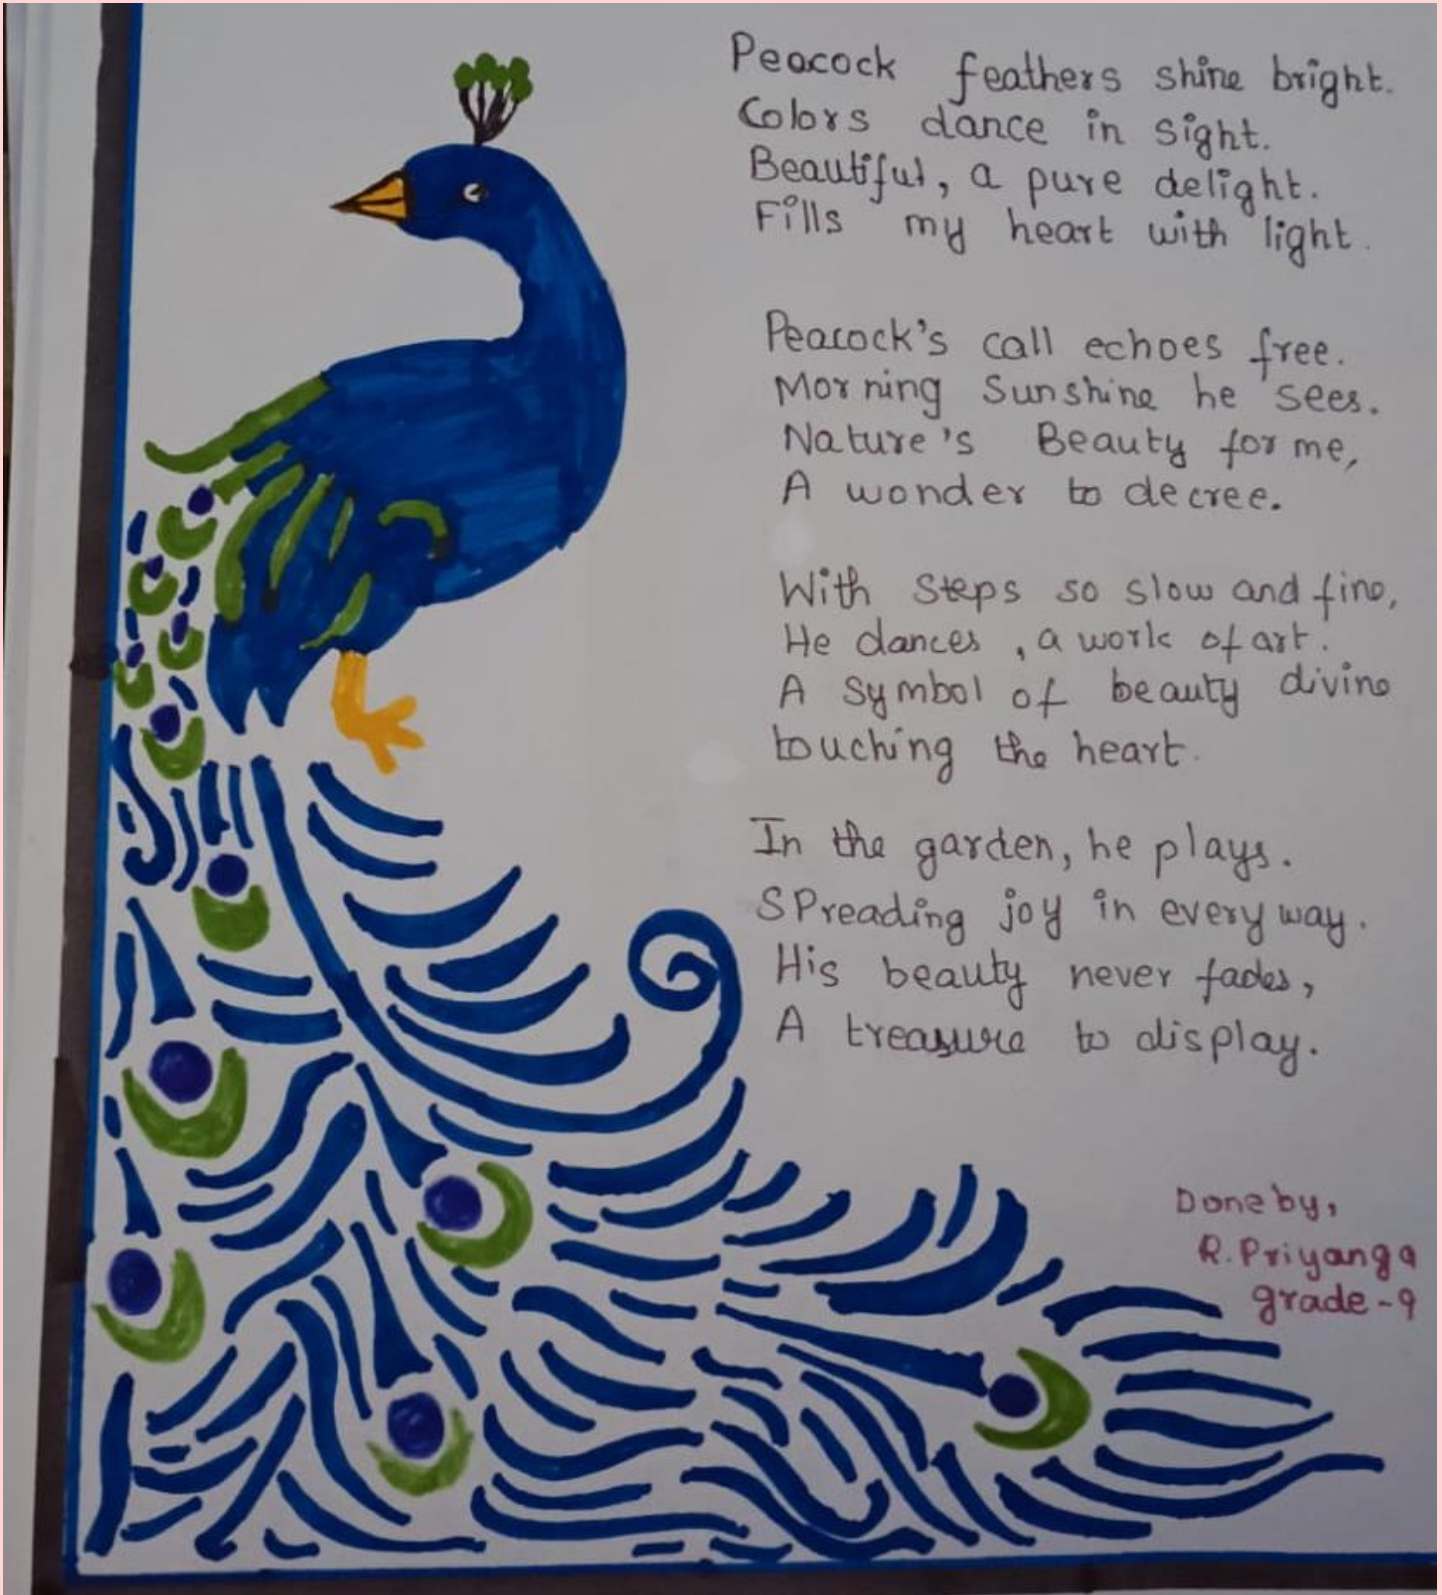 Peacock feathers shine bright.
Colors dance in sight.
Beautiful, a pure delight.
Fills my heart with light.
Peacock's call echoes free.
Morning Sunshine he sees.
Nature's Beauty for me,
A wonder to decree.
With steps so slow and fine,
He dances, a work of art.
A symbol of beauty divine
touching the heart.
In the garden, he plays.
SPreading joy in every way.
His beauty never fades,
A treasure to display.
Done by,
R. Priyanga
grade-9